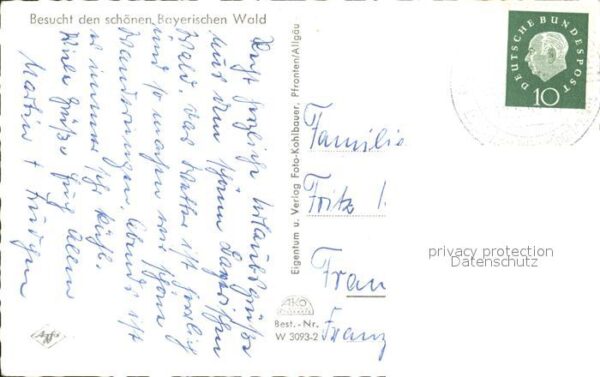 Besucht den schönen Bayerischen Wald
Euch herzliche Urlaubsgrüße
aus dem schönen Bayrischen
Wald. Das Wetter ist herrlich
und so machen wir schöne
Wanderungen. Abends ist
es immer sehr kühl.
Viele Grüße Euch allen
Martin +
Eigentum u. Verlag Foto-Kohlbauer, Pfronten/Allgäu
AKO
Best.-Nr.
W 3093-2
Agfa
DEUTSCHE BUNDESPOST
10
Familie
Fritz
Fran
Franz
privacy protection
Datenschutz